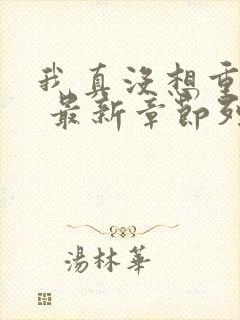 我真没想重
最新章節列
湯林華